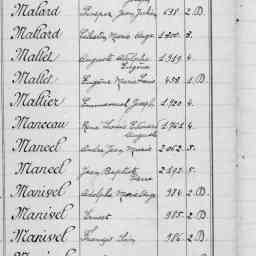 Malard Prosper Jean Julien 638 2. D.
Mallard Célestin Marie Ange 1800 3.
Mallet Auguste Adolphe
Eugène 1959 4.
Mallet Eugène Marie Louis 458 1. D.
Mallier Emmanuel Joseph 1920 4.
Manceau René Louis Edouard
Auguste 1761 4.
Maneel André Jean Marie 2062 5.
Maneel Jean Baptiste
Pierre 5.
Manivel Adolphe Marie Ange 984 2. D.
Manivel Ernest 985 2. D.
Manivel François 986 2. D.